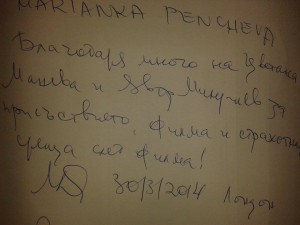 MARIANKA PENCHEVA
Благодаря много на Цветана
Манева и Явор Милушев за
присъствието, филма и страхотна
среща след филма!
30/3/2014 Лондон